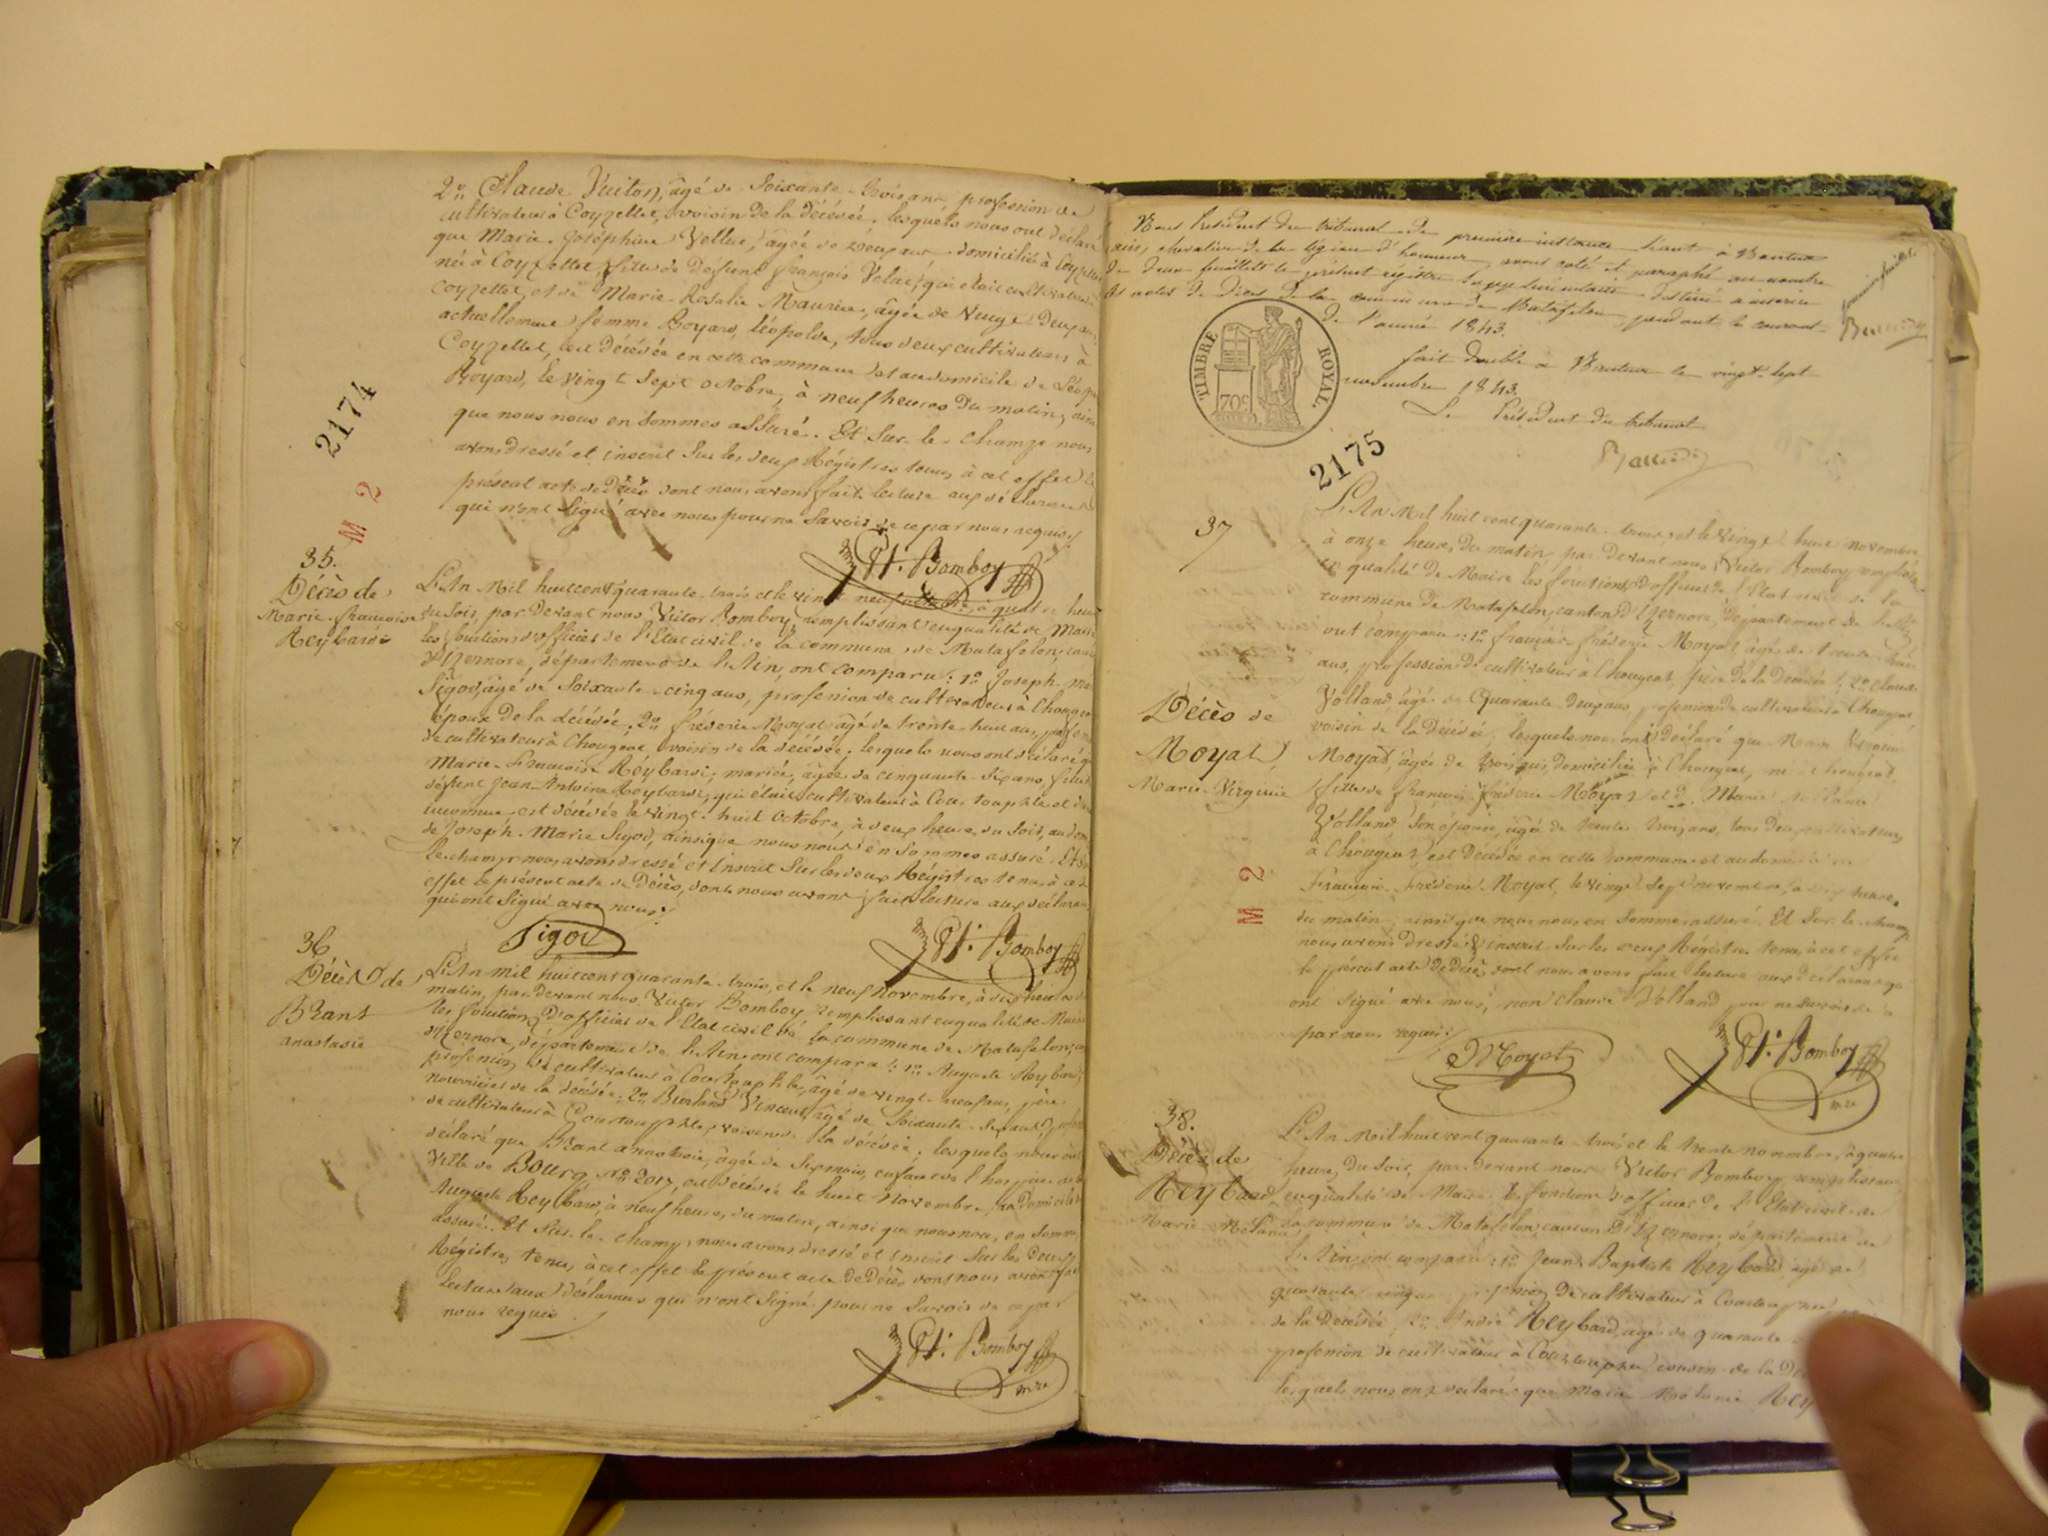 2º Claude Vuiton, âgé de soixante-trois ans, profession de
cultivateur à Coyzellet, voisin de la décédée, lesquels nous ont déclaré
que Marie-Joséphine Velluc, âgée de deux ans, domiciliée à Coyzellet
née à Coyzellet, fille de défunt françois Velluc, qui était cultivateur à
Coyzellet, et de Marie-Rosalie Maurice, âgée de vingt deux ans,
actuellement femme Boyard, léopolde, tous deux cultivateurs à
Coyzellet, est décédée en cette commune et au domicile de Léopolde
Boyard, le vingt sept octobre, à neuf heures du matin, ainsi
que nous nous en sommes assuré. Et sur le champ nous
avons dressé et inscrit sur les deux Régistres tenus à cet effet le
présent acte de Décès dont nous avons fait lecture aux déclarants
qui n'ont signé avec nous pour ne savoir de ce par nous requis.
Vr. Bomboy
2174
M 2
35.
Décès de
Marie-françoise
Reybard
L'An Mil huit cent quarante-trois et le vingt neuf octobre, à quatre heures
du soir, par devant nous Victor Bomboy remplissant en qualité de Maire
les fonctions d'officier de l'Etat civil de la commune de Matafelon, canton
d'Izernore, département de l'Ain, ont comparu: 1º Joseph-Marie
Sigod, âgé de soixante-cinq ans, profession de cultivateur à Chougeat
époux de la décédée, 2º fréderic Moyat, âgé de trente-huit ans, profession
de cultivateur à Chougeat, voisin de la décédée, lesquels nous ont déclaré que
Marie-françoise Reybard, mariée, âgée de cinquante-six ans, fille de
défunt Jean-Antoine Reybard, qui était cultivateur à Courtouphle et de
inconnue est décédée le vingt-huit octobre, à deux heures du soir, au domicile
de Joseph-Marie Sigod, ainsi que nous nous en sommes assuré. Et sur
le champ nous avons dressé et inscrit sur les deux Régistres tenus à cet
effet le présent acte de Décès, dont nous avons fait lecture aux déclarants
qui ont signé avec nous.
Sigod
Vr. Bomboy
36
Décès de
Brant
anastasie
L'An mil huit cent quarante-trois, et le neuf Novembre, à dix heures du
matin, par devant nous, Victor Bomboy remplissant en qualité de Maire
les fonctions d'officier de l'Etat civil de la commune de Matafelon, canton
d'Izernore, département de l'Ain, ont comparu: 1º Auguste Reybard,
profession de cultivateur à Courtouphle, âgé de vingt-neuf ans, père
nourricier de la décédée, 2º Burland Vincent, âgé de soixante-six ans, profession
de cultivateur à Courtouphle, voisin de la décédée, lesquels nous ont
déclaré que Brant anastasie, âgée de six mois, enfant de l'hospice de la
Ville de Bourg, Nº 2017, est décédée le huit novembre, au domicile de
Auguste Reybard, à neuf heures du matin, ainsi que nous nous en sommes
assuré. Et sur le champ, nous avons dressé et inscrit sur les deux
Régistres, tenus à cet effet le présent acte de Décès dont nous avons fait
lecture aux déclarants qui n'ont signé pour ne savoir de ce par
nous requis.
Vr. Bomboy
mre
Nous Président du tribunal de première instance séant à Nantua
ain, chevalier de la légion d'honneur, avons coté et paraphé au nombre
de deux feuillets le présent régistre supplémentaire destiné à inscrire
les actes de Décès de la commune de Matafelon pendant le courant
de l'année 1843.
fait double à Nantua le vingt-sept
novembre 1843.
Le Président du tribunal
TIMBRE ROYAL
70c
2175
37
Décès de
Moyat
Marie-Virginie
M 2
L'An Mil huit cent quarante-trois et le vingt-huit novembre,
à onze heures du matin, par devant nous Victor Bomboy remplissant
en qualité de Maire les fonctions d'officier de l'Etat civil de la
commune de Matafelon, canton d'Izernore, département de l'Ain,
ont comparu: 1º françois-fréderic Moyat, âgé de trente-huit
ans, profession de cultivateur à Chougeat, père de la Décédée; 2º Claude
Volland, âgé de Quarante Deux ans, profession de cultivateur à Chougeat,
voisin de la Décédée, lesquels nous ont déclaré que Marie Virginie
Moyat, âgée de trois ans, domiciliée à Chougeat, née à Chougeat,
fille de françois fréderic Moyat et de Marie
Volland son épouse, âgée de trente trois ans, tous deux cultivateurs,
à Chougeat, est Décédée en cette commune et au domicile de
François fréderic Moyat, le vingt sept novembre, à dix heures
du matin, ainsi que nous nous en sommes assuré. Et sur le champ
nous avons dressé et inscrit sur les deux Régistres tenus à cet effet
le présent acte de Décès dont nous avons fait lecture aux déclarants qui
ont signé avec nous, non claude Volland pour ne savoir de ce
par nous requis.
Moyat
Vr. Bomboy
mre
38.
Décès de
Reybard
Marie-Mélanie
L'An Mil huit cent quarante-trois et le trente novembre, à quatre
heures du soir, par devant nous Victor Bomboy, remplissant
en qualité de Maire les fonctions d'officier de l'Etat civil de
la commune de Matafelon, canton d'Izernore, département de
l'Ain, ont comparu: 1º Jean-Baptiste Reybard, âgé de
quarante cinq ans, profession de cultivateur à Courtouphle,
de la Décédée, 2º André Reybard, âgé de quarante
profession de cultivateur à Courtouphle, cousin de la
lesquels nous ont déclaré que Marie Mélanie Rey